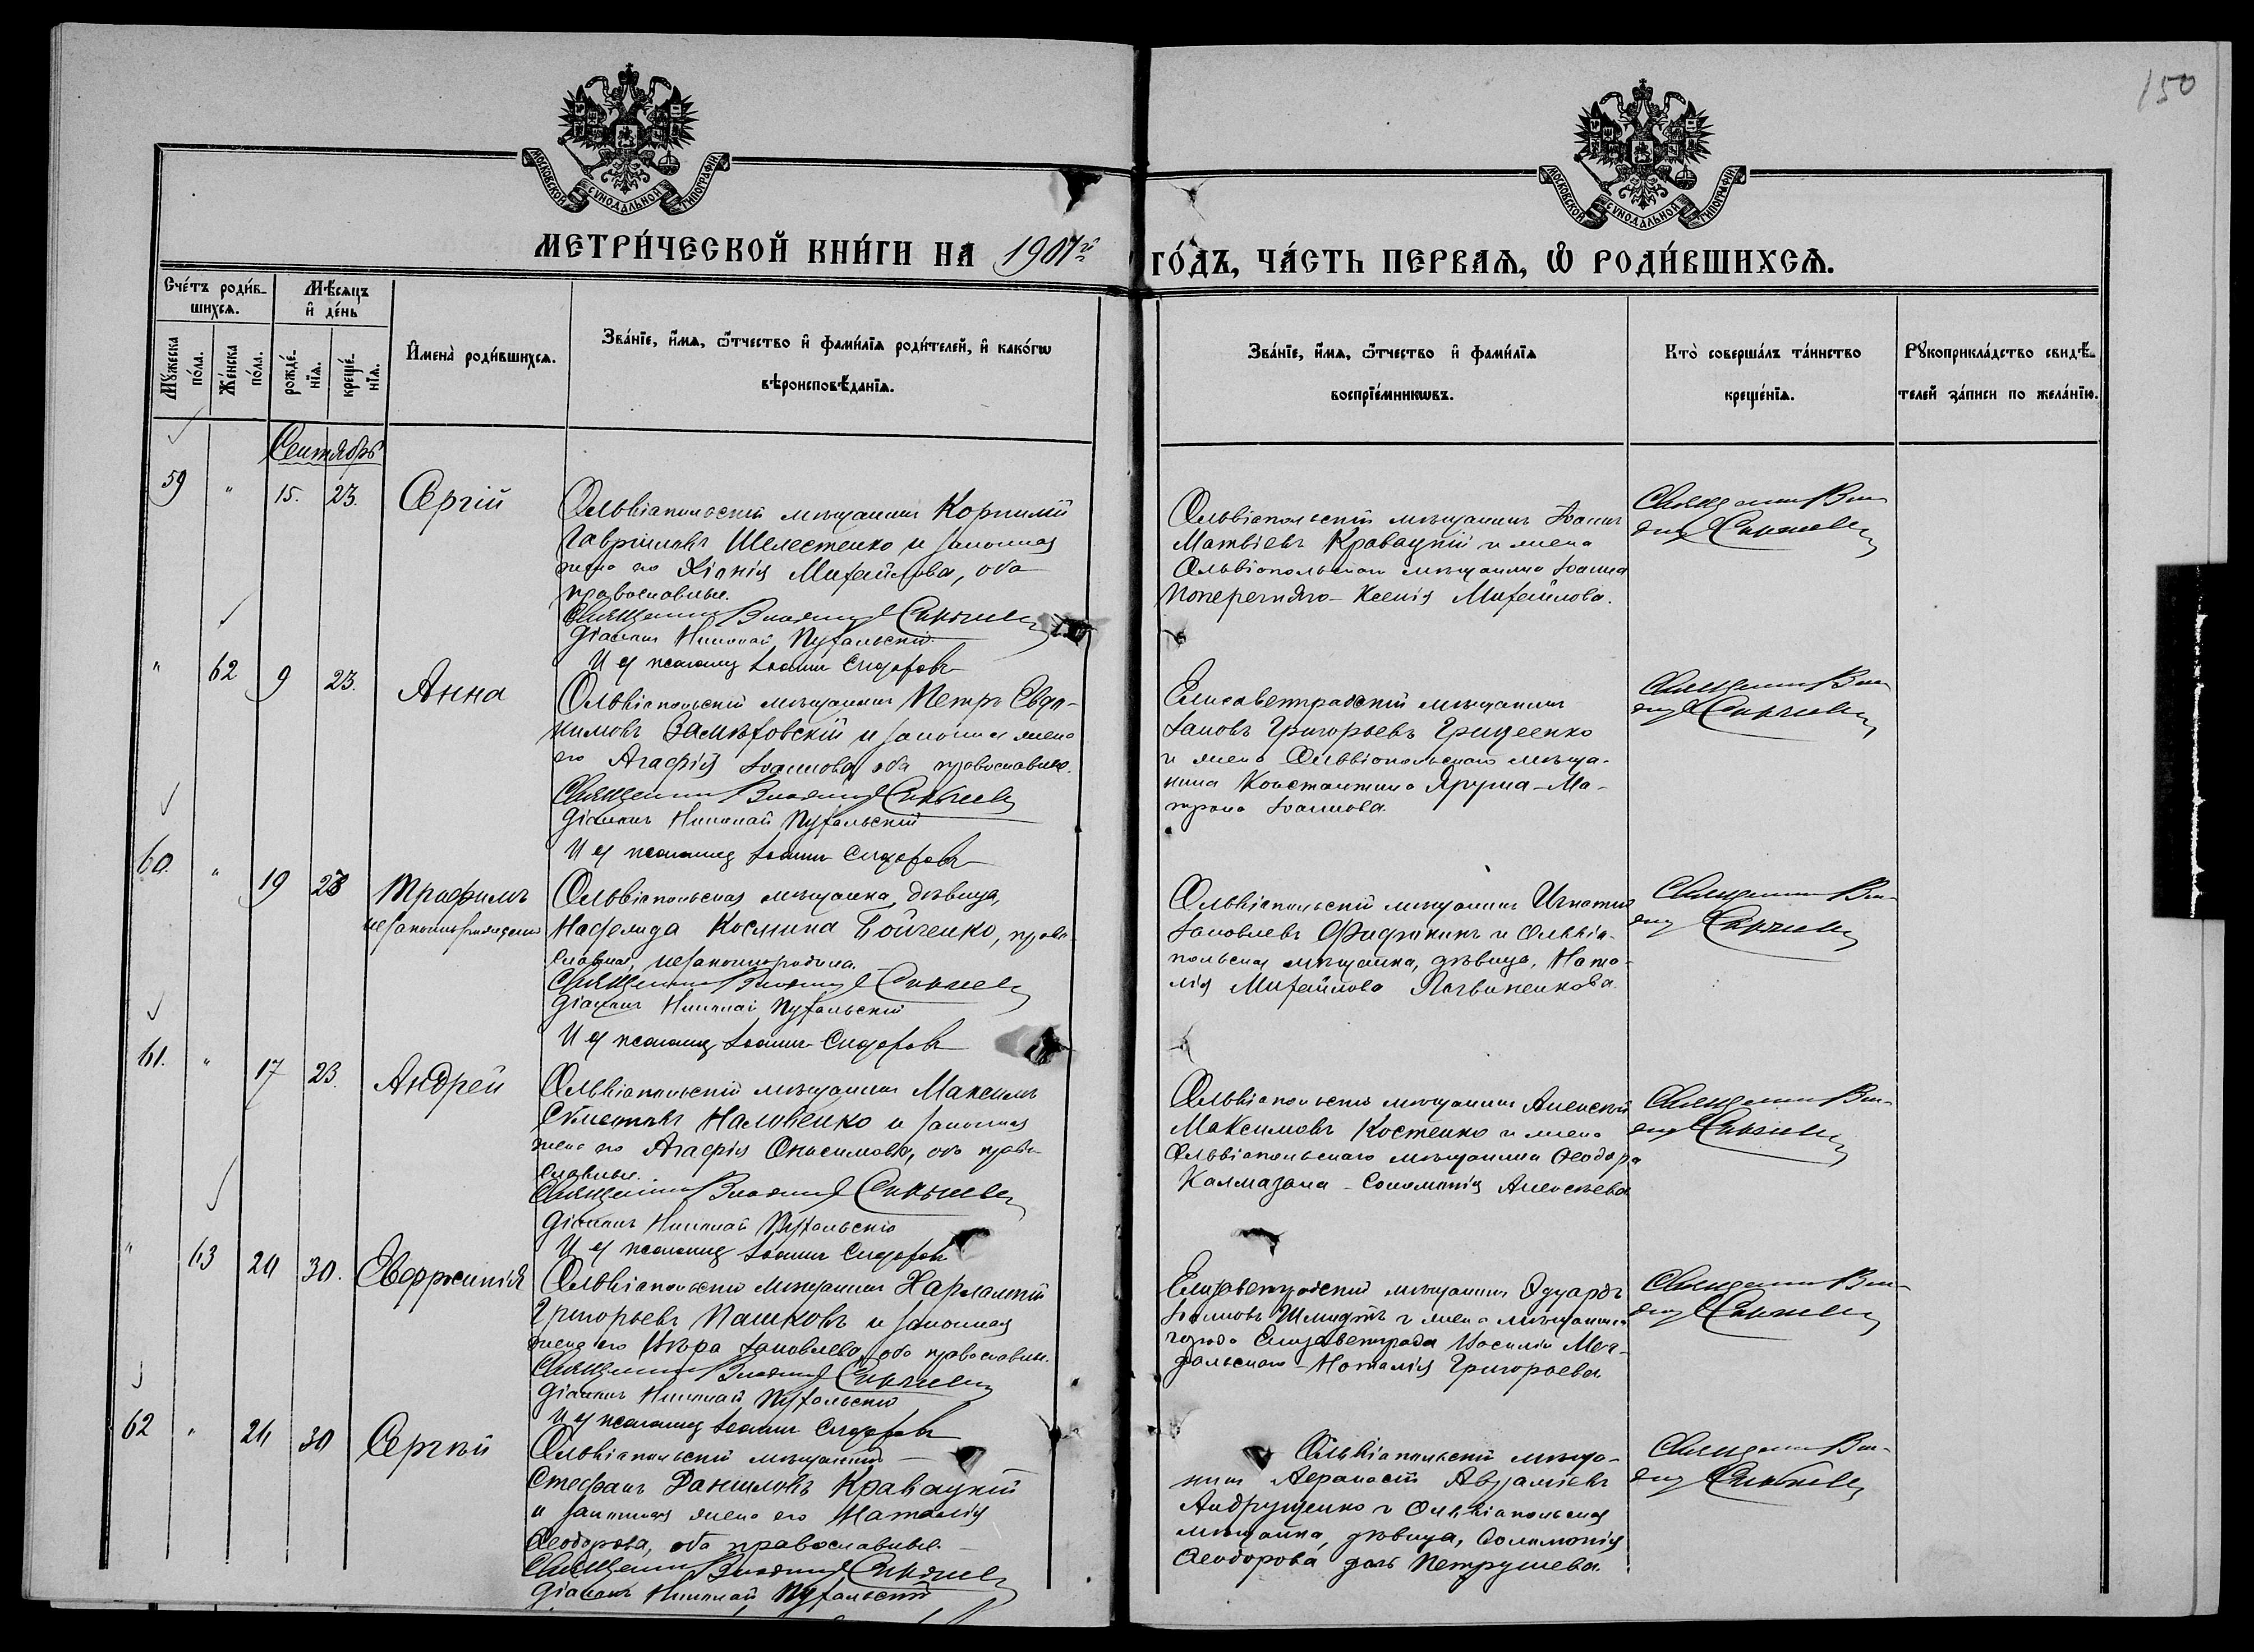 150
МОСКОВСКОЙ СѴНОДАЛЬНОЙ ТИПОГРАФІИ
МОСКОВСКОЙ СѴНОДАЛЬНОЙ ТИПОГРАФІИ
МЕТРИ́ЧЕСКОЙ КНИ́ГИ НА 1907й ГО́ДЪ, ЧА́СТЬ ПЕРВАѦ, Ѡ РОДИ́ВШИХСѦ.
Сче́тъ роди́в-
шихсѧ.
Мѣ́сѧцъ
и҆ де́нь
Мꙋ́жеска
по́ла.
Же́нска
по́ла.
рожде́-
нїѧ.
креще́-
нїѧ.
И҆мена̀ роди́вшихсѧ.
Зва́нїе, и҆́мѧ, ѻ҆́тчество и҆ фами́лїѧ роди́телей, и҆ како́гѡ
вѣроисповѣ́данїѧ.
Зва́нїе, и҆́мѧ, ѻ҆́тчество и҆ фами́лїѧ
воспрїе́мникѡвъ.
Кто̀ соверша́лъ та́инство
креще́нїѧ.
Рꙋкоприкла́дство свидѣ́-
телей за́писи по жела́нїю.
Сентябрь
59 " 15. 23. Сергій
Ольвіопольскій мѣщанинъ Корнилій
Гавріиловъ Шелестенко и законная
жена его Хіонія Михайлова, оба
православные.
Священникъ Владимір
Діаконъ Николай Пухальскій
И д псаломщ Іоаннъ Сидоровъ
Ольвіопольскій мѣщанинъ Іоаннъ
Матвіевъ Кравацкій и жена
Ольвіопольскаго мѣщанина Іоанна
Поперечняго - Ксенія Михайлова.
Священникъ Вла-
" 62 9 23. Анна
Ольвіопольскій мѣщанинъ Петръ Евдо-
кимовъ Замѣховскій и законная жена
его Агафія Іоаннова, оба православные.
Священникъ Владимір
Діаконъ Николай Пухальскій
И д псаломщ Іоаннъ Сидоровъ
Елисаветградскій мѣщанинъ
Іаковъ Григорьевъ Гриценко
и жена Ольвіопольскаго мѣща-
нина Константина Яруша - Ма-
трона Іоаннова.
Священникъ Вла-
60. " 19 23 Трофимъ
незаконнорожденный
Ольвіопольская мѣщанка, дѣвица,
Надежда Космина Бойченко, право-
славная, незаконнородила.
Священникъ Владимір
Діаконъ Николай Пухальскій
И д псаломщ Іоаннъ Сидоровъ
Ольвіопольскій мѣщанинъ Игнатій
Іаковлевъ и Ольвіо-
польская мѣщанка, дѣвица, Ната-
лія Михайлова Логвиненкова.
Священникъ Вла-
61. " 17 23. Андрей
Ольвіопольскій мѣщанинъ Максимъ
Наловенко и законная
жена его Агафія Онисимова, оба право-
славные.
Священникъ Владимір
Діаконъ Николай Пухальскій
И д псаломщ Іоаннъ Сидоровъ
Ольвіопольскій мѣщанинъ Алексѣй
Максимовъ Костенко и жена
Ольвіопольскаго мѣщанина Ѳеодора
Калмазана - Соломонія Алексѣева
Священникъ Вла-
" 63 24 30. Евфросинія
Ольвіопольскій мѣщанинъ Харлампій
Григорьевъ Пашковъ и законная
жена его Вѣра Іаковлева, оба православные.
Священникъ Владимір
Діаконъ Николай Пухальскій
И д псаломщ Іоаннъ Сидоровъ
Елизаветградскій мѣщанинъ Эдуардъ
Іоанновъ Шмидтъ и жена мѣщанина
города Елизаветграда Василія
- Наталія Григорьева.
Священникъ Вла-
62 " 24 30 Сергѣй
Ольвіопольскій мѣщанинъ
Стефанъ Даниловъ Кравацкій
и законная жена его Наталія
Ѳеодорова, оба православные.
Священникъ Владимір
Діаконъ Николай Пухальскій
Ольвіопольскій мѣща-
нинъ Аѳанасій Авраміевъ
Андрущенко и Ольвіопольская
мѣщанка, дѣвица, Соломонія
Ѳеодорова дочь Петрушева.
Священникъ Вла-